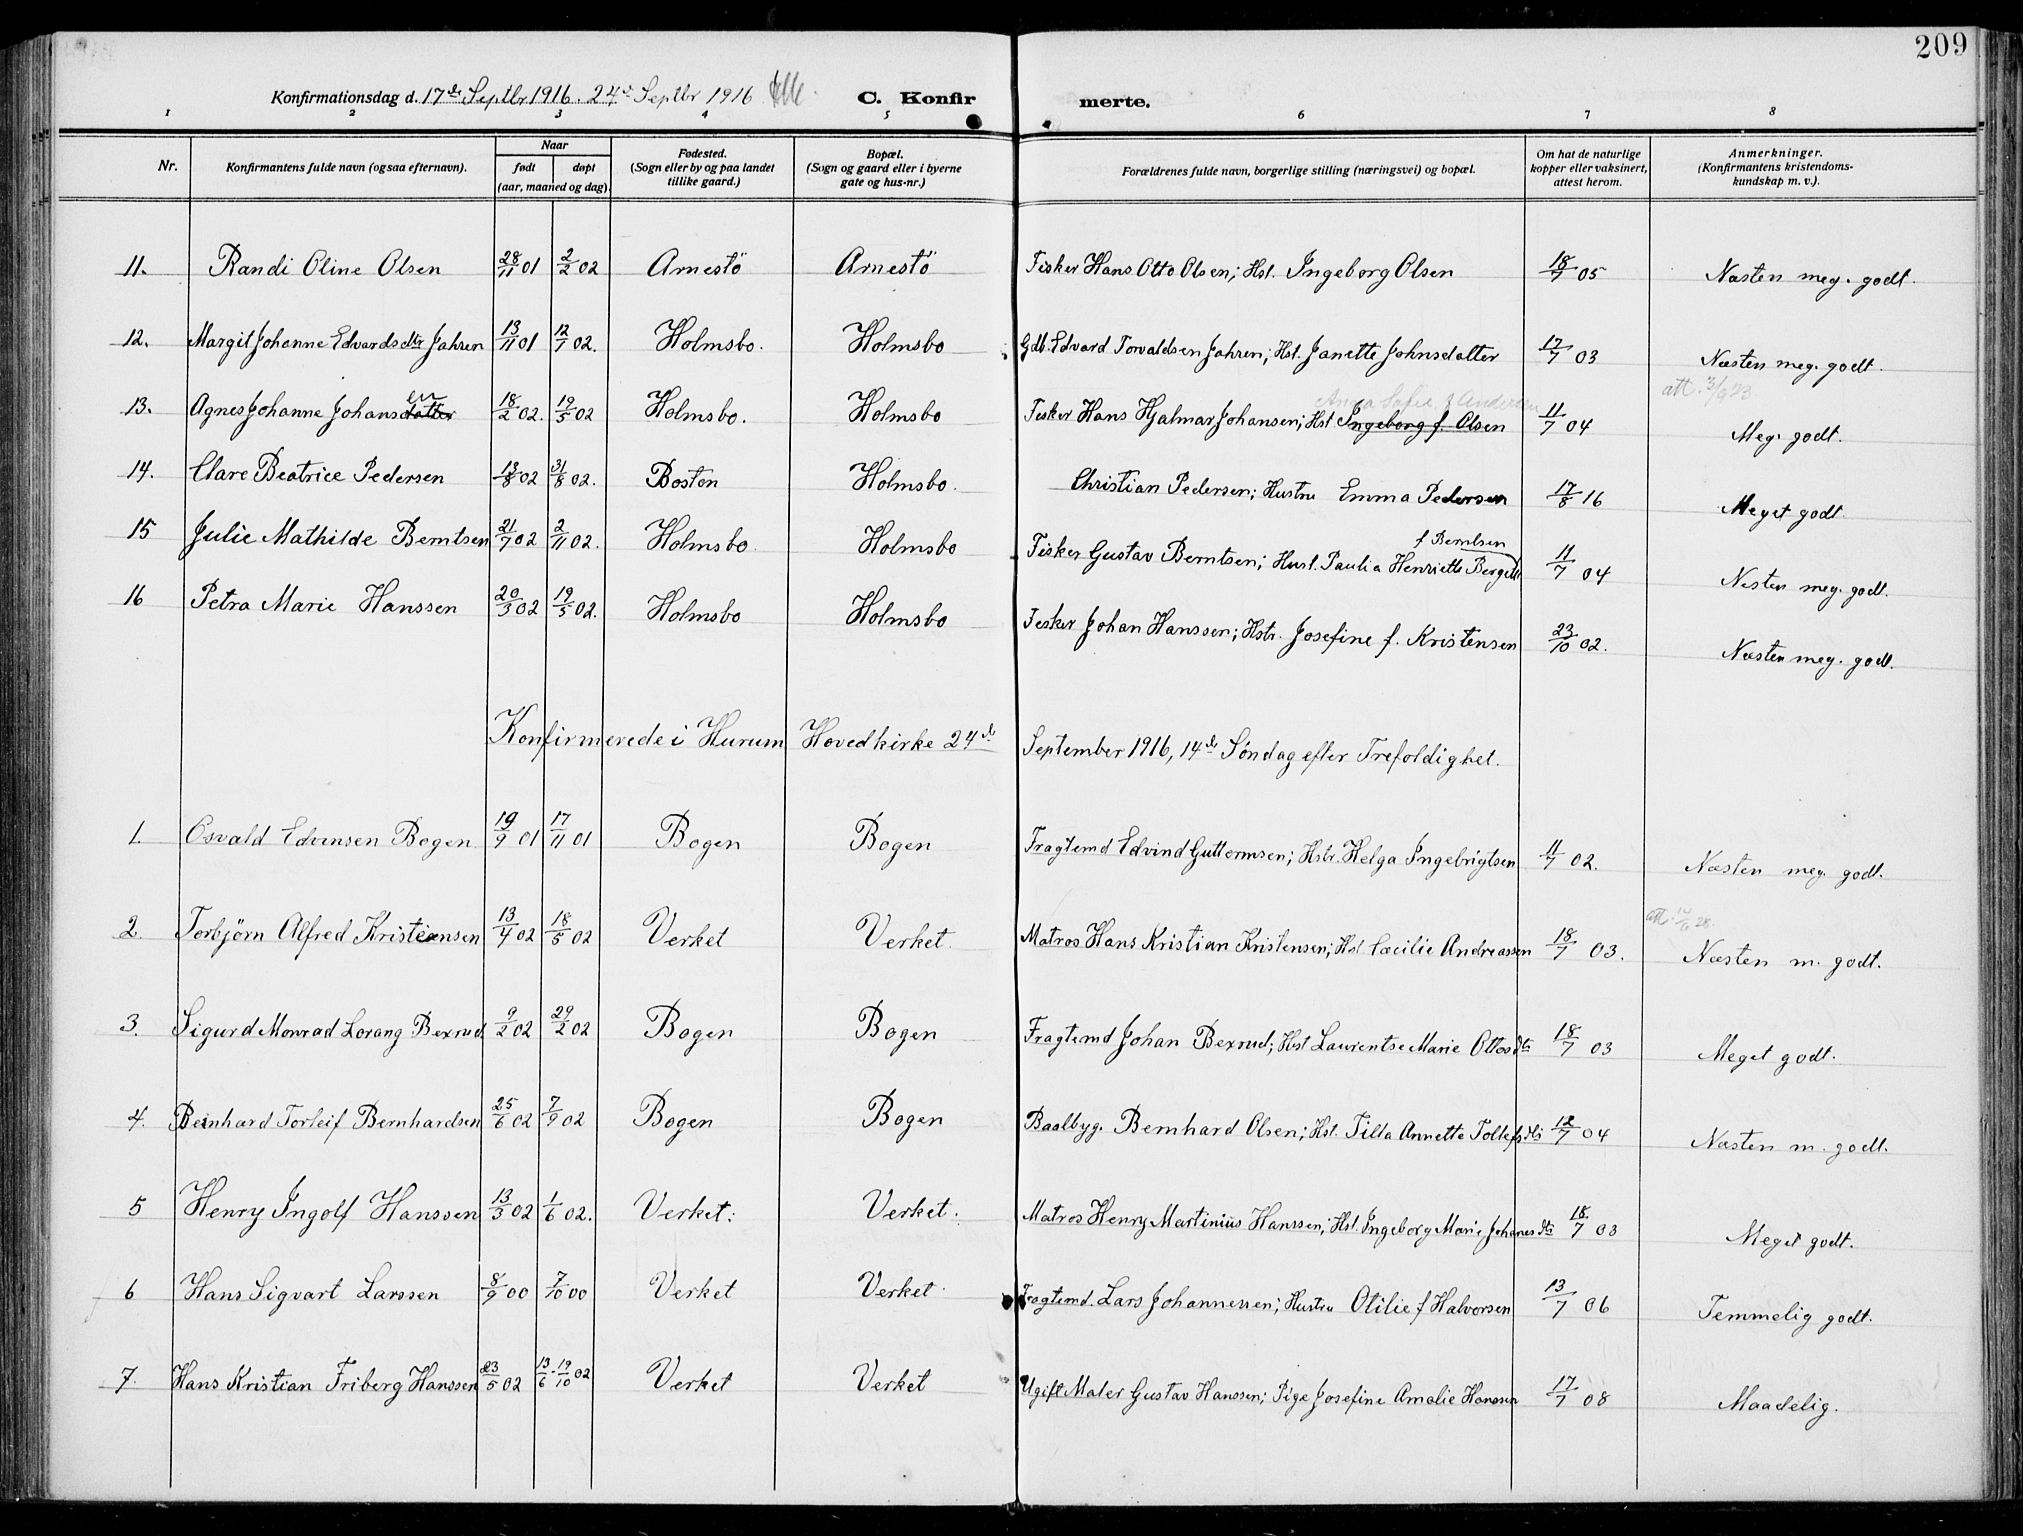 209
Konfirmationsdag d. 17de Septbr 1916. 24de Septbr 1916
C. Konfirmerte.
1 2 3 4 5 6 7 8
Nr. Konfirmantens fulde navn (ogsaa efternavn). Naar født døpt (aar, maaned og dag). Fødested. (Sogn eller by og paa landet tillike gaard.) Bopæl. (Sogn og gaard eller i byerne gate og hus-nr.) Forældrenes fulde navn, borgerlige stilling (næringsvei) og bopæl. Om hat de naturlige kopper eller vaksinert, attest herom. Anmerkninger. (Konfirmantens kristendoms-kundskap m. v.).
11. Randi Oline Olsen 28/11 01 2/2 02 Arnestö Arnestö Fisker Hans Otto Olsen; Hst. Ingeborg Olsen 18/7 05 Næsten meg. godt.
12. Margit Johanne Edvardsdtr Jahren 13/11 01 12/1 02. Holmsbo. Holmsbo Gdb. Edvard Torvaldsen Jahren; Hst. Janette Johnsdatter 17/7 03 Næsten meg. godt.
att. 3/9 23
en Anna Sofie f Andersen
13. Agnes Johanne Johansdatter 18/2 02. 19/5 02 Holmsbo. Holmsbo Fisker Hans Hjalmar Johansen; Hst Ingeborg f. Olsen 11/7 04 Meg. godt.
14. Clare Beatrice Pedersen 13/8 02 31/8 02. Boston Holmsbo. Christian Pedersen; Hustru Emma Pedersen 17/8 16 Meget godt.
f Berntsen
15 Julie Mathilde Berntsen 21/7 02 2/11 02. Holmsbo. Holmsbo Fisker Gustav Berntsen; Hust. Paulia Henriette 11/7 04 Nesten meg. godt.
16 Petra Marie Hanssen 20/3 02 19/5 02. Holmsbo Holmsbo Fisker Johan Hanssen; Hstr. Josefine f. Kristensen 23/10 02. Næsten meg. godt.
Konfirmerede i Hurum Hovedkirke 24de September 1916, 14de Søndag efter Trefoldighet.
1. Osvald Edvinsen Bogen 19/9 01 17/11 01 Bogen Bogen Fragtemd Edvind Guttormsen; Hstr. Helga Ingebrigtsen 11/7 02. Næsten meg. godt.
2. Torbjørn Alfred Kristensen 13/4 02 18/5 02 Verket Verket. Matros Hans Kristian Kristensen; Hst Cæcilie Andreassen 18/7 03. Næsten m. godt.
3. Sigurd Monrad Lorang Bexrud 9/2 02 29/2 02 Bogen Bogen Fragtemd Johan Bexrud; Hst Laurentse Marie Ottosdtr 18/7 03 Meget godt.
4. Bernhard Torleif Bernhardsen 25/6 02 7/9 02 Bogen Bogen Baatbyg. Bernhard Olsen; Hst. Tilla Annette Tollefsdtr 12/7 04 Næsten m. godt.
5 Henry Ingolf Hanssen 13/3 02 1/6 02. Verket. Verket. Matros Henry Martinius Hanssen; Hst. Ingeborg Marie Johanesdtr 18/7 03 Meget godt.
6 Hans Sigvart Larssen 8/9 00 7/10 00 Verket Verket. Fragtemd. Lars Johannessen; Hustru Otilie f Halvorsen 13/7 06 Temmelig godt.
7. Hans Kristian Friberg Hanssen 23/5 02 13/6 - 19/10 02 Verket Verket Ugift Maler Gustav Hanssen; Pige Josefine Amalie Hanssen 17/7 08 Maadelig.